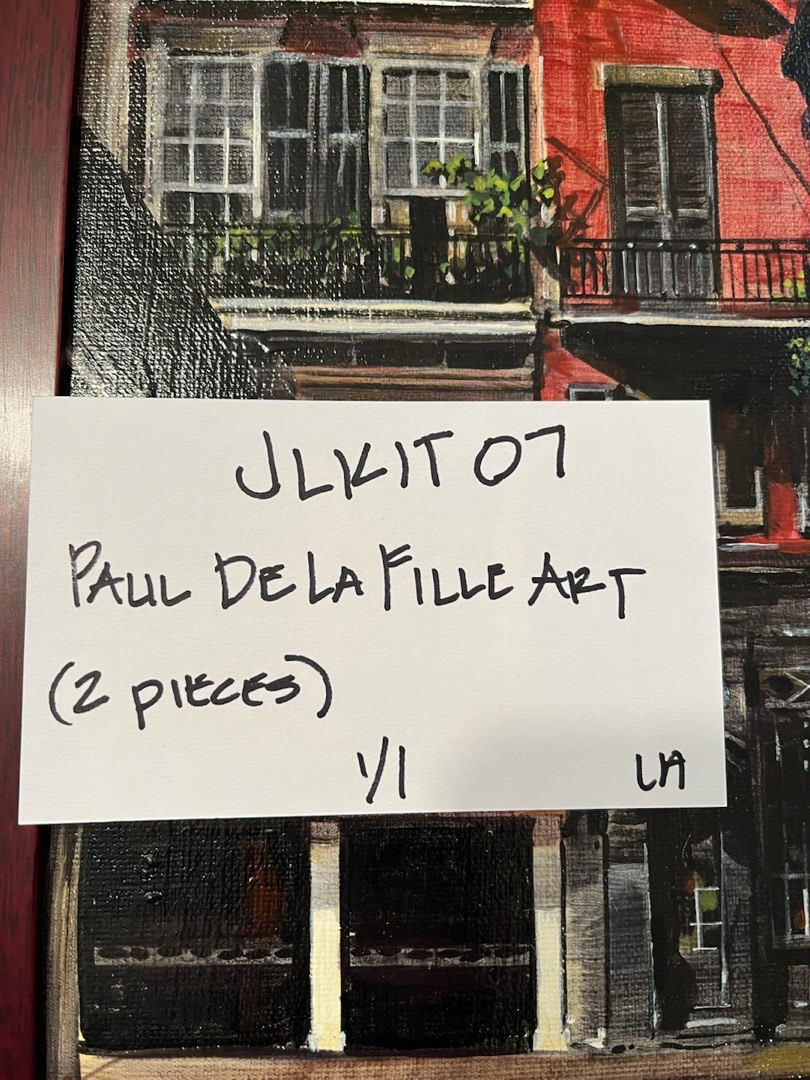 JLKIT07
PAUL DE LA FILLE ART
(2 PIECES)
1/1
LA